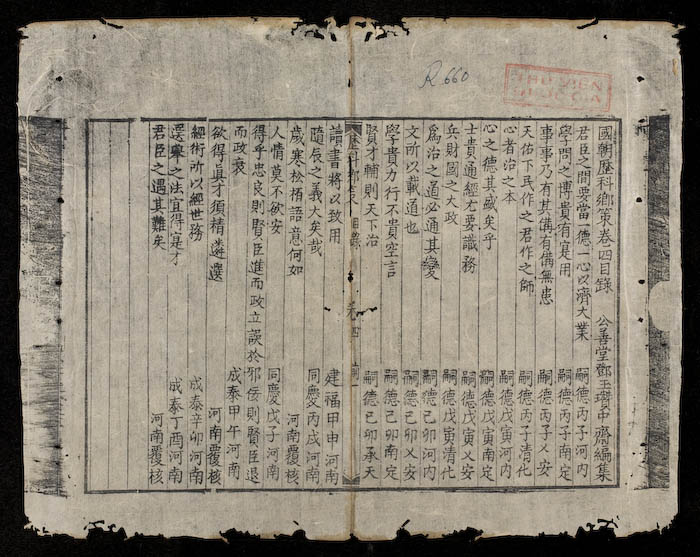 R.660
THƯ VIỆN
QUỐC GIA
國朝歷科鄉策卷四目錄 公善堂鄧玉瓚中齋編集
君臣之間要當一德一心以濟大業 嗣德丙子河内
學問之博貴有寔用 嗣德丙子南定
事事乃有其備有備無患 嗣德丙子乂安
天佑下民作之君作之師 嗣德丙子清化
心者治之本 嗣德戊寅河内
心之德其盛矣乎 嗣德戊寅南定
士貴通經尤要識務 嗣德戊寅乂安
兵財國之大政 嗣德戊寅清化
爲治之道必通其變 嗣德己卯河内
文所以載道也 嗣德己卯乂安
學貴力行不貴空言 嗣德己卯南定
賢才輔則天下治 嗣德己卯承天
歷科鄉策 目錄 卷四
讀書將以致用 建福甲申河南
隨辰之義大矣哉 同慶丙戌河南
歲寒松栢語意何如 河南覆核
人情莫不欲安 同慶戊子河南
得乎忠良則賢臣進而政立誤於邪佞則賢臣退
而政衰 成泰甲午河南
欲得眞才須精遴選 河南覆核
經術所以經世務 成泰辛卯河南
選舉之法宜得寔才 成泰丁酉河南
君臣之遇其難矣 河南覆核